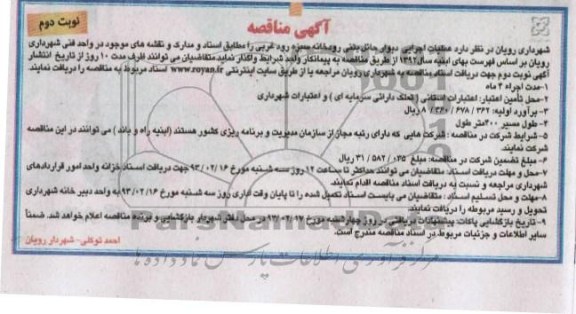 آگهی مناقصه
نوبت دوم
شهرداری رویان در نظر دارد عملیات اجرایی دیوار حائل بتنی رودخانه سبزه رود غربی را مطابق اسناد و مدارک و نقشه های موجود در واحد فنی شهرداری
رویان بر اساس فهرست بهای ابنیه سال ۱۳۹۲ از طریق مناقصه به پیمانکار واجد شرایط واگذار نماید متقاضیان می توانند ظرف مدت ۱۰ روز از تاریخ انتشار
آگهی نوبت دوم جهت دریافت اسناد مناقصه به شهرداری رویان مراجعه یا از طریق سایت اینترنتی www.royan.ir اسناد مربوط به مناقصه را دریافت نمایند.
۱-مدت اجراء ۴ ماه
۲-محل تأمین اعتبار: اعتبارات استانی (تملک دارائی سرمایه ای) و اعتبارات شهرداری
۳- برآورد اولیه: ۳۶۲ / ۶۷۸ / ۳۶۰ / ۸ ریال
۴- طول مسیر ۲۰۰متر طول
۵- شرایط شرکت در مناقصه: شرکت هایی که دارای رتبه مجاز از سازمان مدیریت و برنامه ریزی کشور هستند (ابنیه راه و باند) می توانند در این مناقصه
شرکت نمایند.
۶- مبلغ تضمین شرکت در مناقصه: مبلغ ۰۴۵ / ۵۸۲ / ۳۱ ریال
۷-محل و مهلت دریافت اسناد: متقاضیان می توانند حداکثر تا ساعت ۱۲ روز سه شنبه مورخ ۹۳/۰۲/۱۶ جهت دریافت اسناد خزانه واحد امور قراردادهای
شهرداری مراجعه و نسبت به دریافت اسناد مناقصه اقدام نمایند.
۸-مهلت و محل تسلیم اسناد: متقاضیان می بایست اسناد تکمیل شده را تا پایان وقت اداری روز سه شنبه مورخ ۹۳/۰۲/۱۶ به واحد دبیر خانه شهرداری
تحویل و رسید مربوطه را دریافت نمایند.
۹- تاریخ بازگشایی پاکات پیشنهادات دریافتی در روز چهارشنبه مورخ ۹۳/۰۲/۱۷ در محل دفتر شهردار بازگشایی و برنده مناقصه اعلام خواهد شد. ضمناً
سایر اطلاعات و جزئیات مربوط در اسناد مناقصه مندرج است.
احمد توکلی- شهردار رویان
مرکز فرآوری اطلاعات پارس نماد داده ها